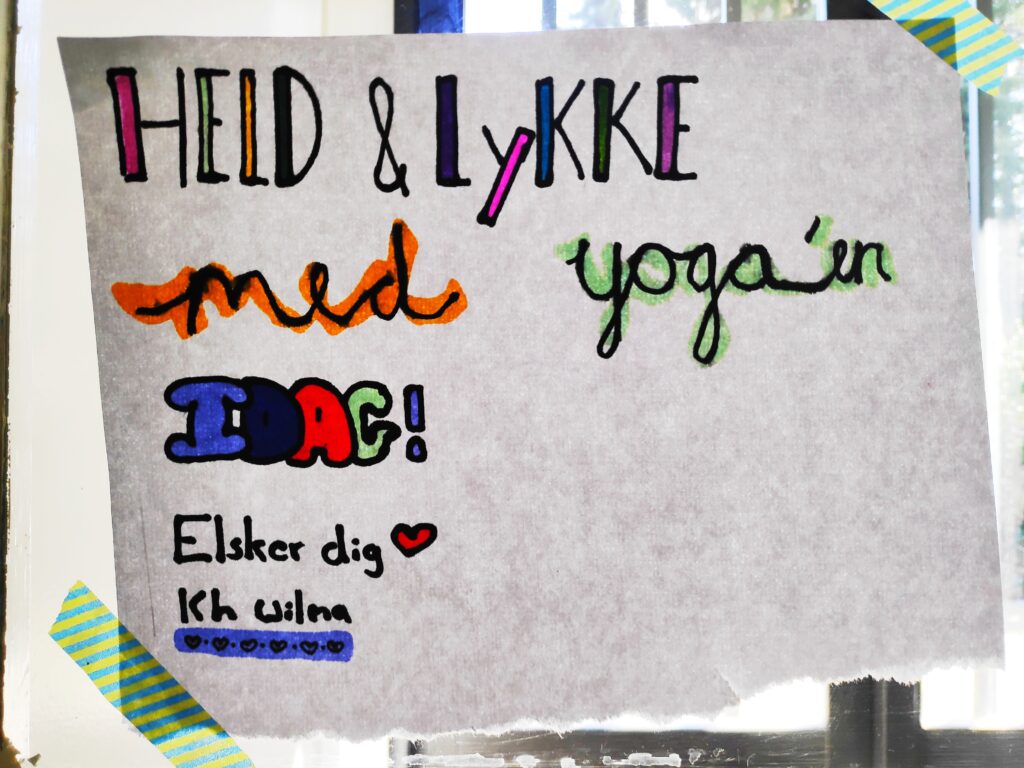 HELD & LyKKE
med yoga'en
IDAG!
Elsker dig
Kh wilma